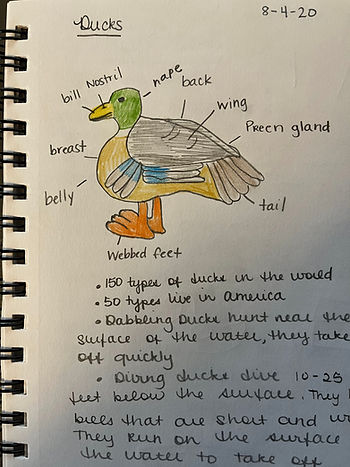 8-4-20
Ducks
bill
Nostril
nape
back
wing
Preen gland
breast
belly
tail
Webbed feet
• 150 types of ducks in the world
• 50 types live in america
• Dabbling Ducks hunt near the
surface of the water, they take
off quickly
• Diving ducks dive 10-25
feet below the surface. They
bills that are short and
They run on the surface
the water to take off